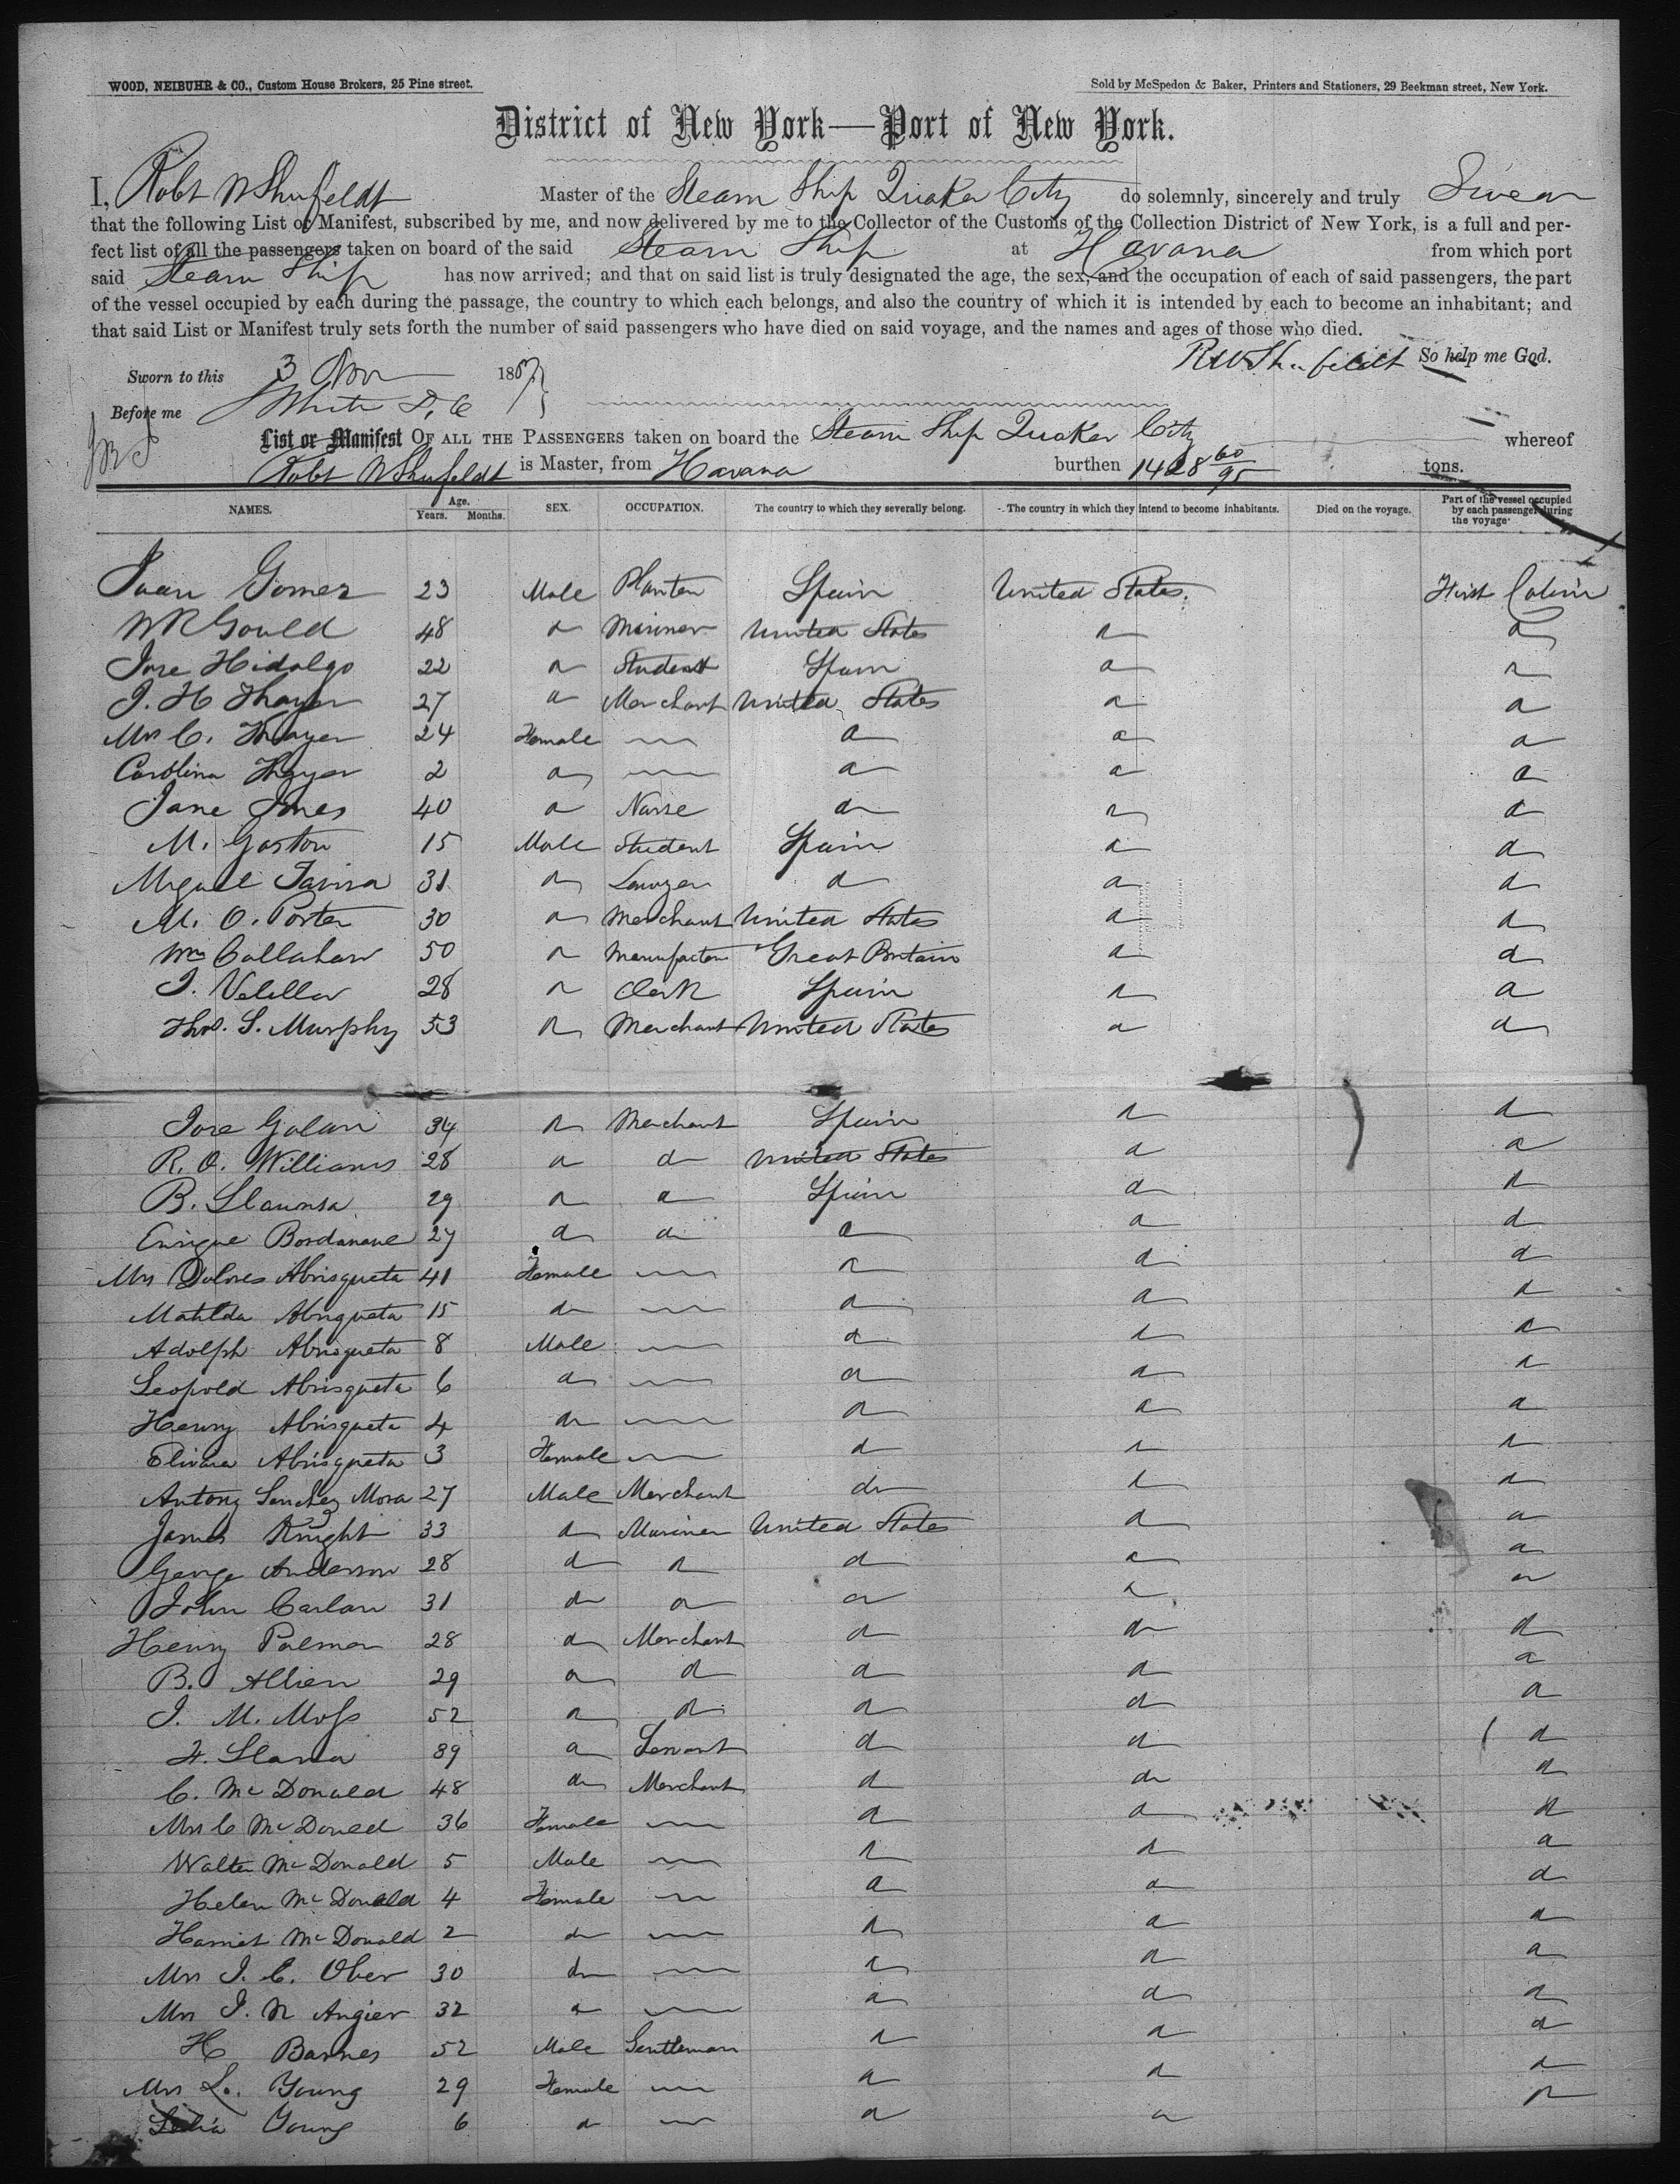 WOOD, NEIBUHR & CO., Custom House Brokers, 25 Pine street. Sold by McSpedon & Baker, Printers and Stationers, 29 Beekman street, New York.
District of New York—Port of New York.
I, Robt W Shufeldt Master of the Steam Ship Quaker City do solemnly, sincerely and truly Swear
that the following List or Manifest, subscribed by me, and now delivered by me to the Collector of the Customs of the Collection District of New York, is a full and per-
fect list of all the passengers taken on board of the said Steam Ship at Havana from which port
said Steam Ship has now arrived; and that on said list is truly designated the age, the sex, and the occupation of each of said passengers, the part
of the vessel occupied by each during the passage, the country to which each belongs, and also the country of which it is intended by each to become an inhabitant; and
that said List or Manifest truly sets forth the number of said passengers who have died on said voyage, and the names and ages of those who died.
RW Shufeldt So help me God.
Sworn to this 3 Nov 1857
Before me White D, C
List or Manifest OF ALL THE PASSENGERS taken on board the Steam Ship Quaker City whereof
Robt W Shufeldt is Master, from Havana burthen 1428 60/95 tons.
NAMES. Age. Years. Months. SEX. OCCUPATION. The country to which they severally belong. The country in which they intend to become inhabitants. Died on the voyage. Part of the vessel occupied by each passenger during the voyage
Juan Gomez 23 Male Planter Spain United States. First Cabin
W R Gould 48 d Mariner United States d d
Jose Hidalgo 22 d Student Spain d d
J. H Thayer 27 d Merchant United States d d
Mrs C. Thayer 24 Female — d d d
Carolina Thayer 2 d — d d d
Jane Jones 40 d Nurse d d d
M. Gaston 15 Male Student Spain d d
Miguel 31 d Lawyer d d d
M. O. Porter 30 d Merchant United States d d
Wm Callahan 50 d Manufactor Great Britain d d
J. Velella 28 d Clerk Spain d d
Thos. S. Murphy 53 d Merchant United States d d
Jose Galan 34 d Merchant Spain d d
R. O. Williams 28 d d United States d d
B. 29 d d Spain d d
Enrique 27 d d d d d
Mrs Dolores Abrisqueta 41 Female — d d d
Matilda Abrisqueta 15 d — d d d
Adolph Abrisqueta 8 Male — d d d
Leopold Abrisqueta 6 d — d d d
Henry Abrisqueta 4 d — d d d
Abrisqueta 3 Female — d d d
Antony Sanchez Mora 27 Male Merchant d d d
James Knight 33 d Mariner United States d d
George Anderson 28 d d d d d
John Carlan 31 d d d d d
Henry Palmer 28 d Merchant d d d
B. Allien 29 d d d d d
J. M. Moss 52 d d d d d
F. Llana 39 d Servant d d d
C. McDonald 48 d Merchant d d d
Mrs C McDonald 36 Female — d d d
Walter McDonald 5 Male — d d d
Helen McDonald 4 Female — d d d
Harriet McDonald 2 d — d d d
Mrs J. C. Ober 30 d — d d d
Mrs J. N Angier 32 d — d d d
H Barnes 52 Male Gentleman d d d
Mrs L. Young 29 Female — d d d
Young 6 d — d d d